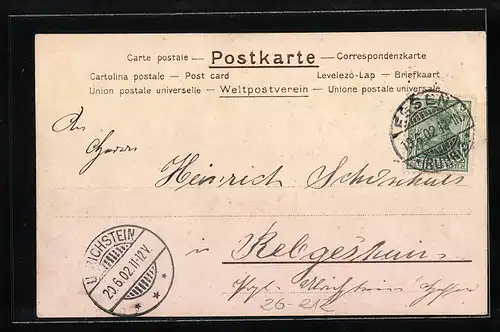 Carte postale — Postkarte — Correspondenzkarte
Cartolina postale — Post card Levelezö-Lap — Briefkaart
Union postale universelle — Weltpostverein — Unione postale universale
An
Herrn
Heinrich
in
ESSEN
19.6.02. 11-12N.
(RUHR)
ULRICHSTEIN
20.6.02.11-12V.
26-212